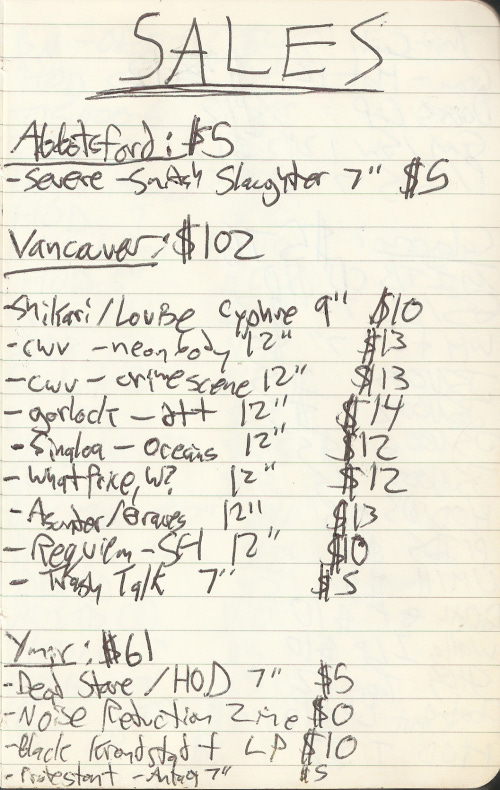 SALES
Abbotsford: $5
- Severe - Snitch Slaughter 7" $5
Vancouver: $102
- Shikari / Louise Cyphre 9" $10
- cwv - neon body 12" $13
- cwv - crime scene 12" $13
- gorlock - att 12" $14
- Sinaloa - Oceans 12" $12
- What price, W? 12" $12
- Asunder / Graves 12" $13
- Requiem - SH 12" $10
- Trash Talk 7" $5
Ymir: $61
- Dead Stare / HOD 7" $5
- Noise Reduction Zine $0
- Black Kronstadt LP $10
- Protestant - Antag 7" $5